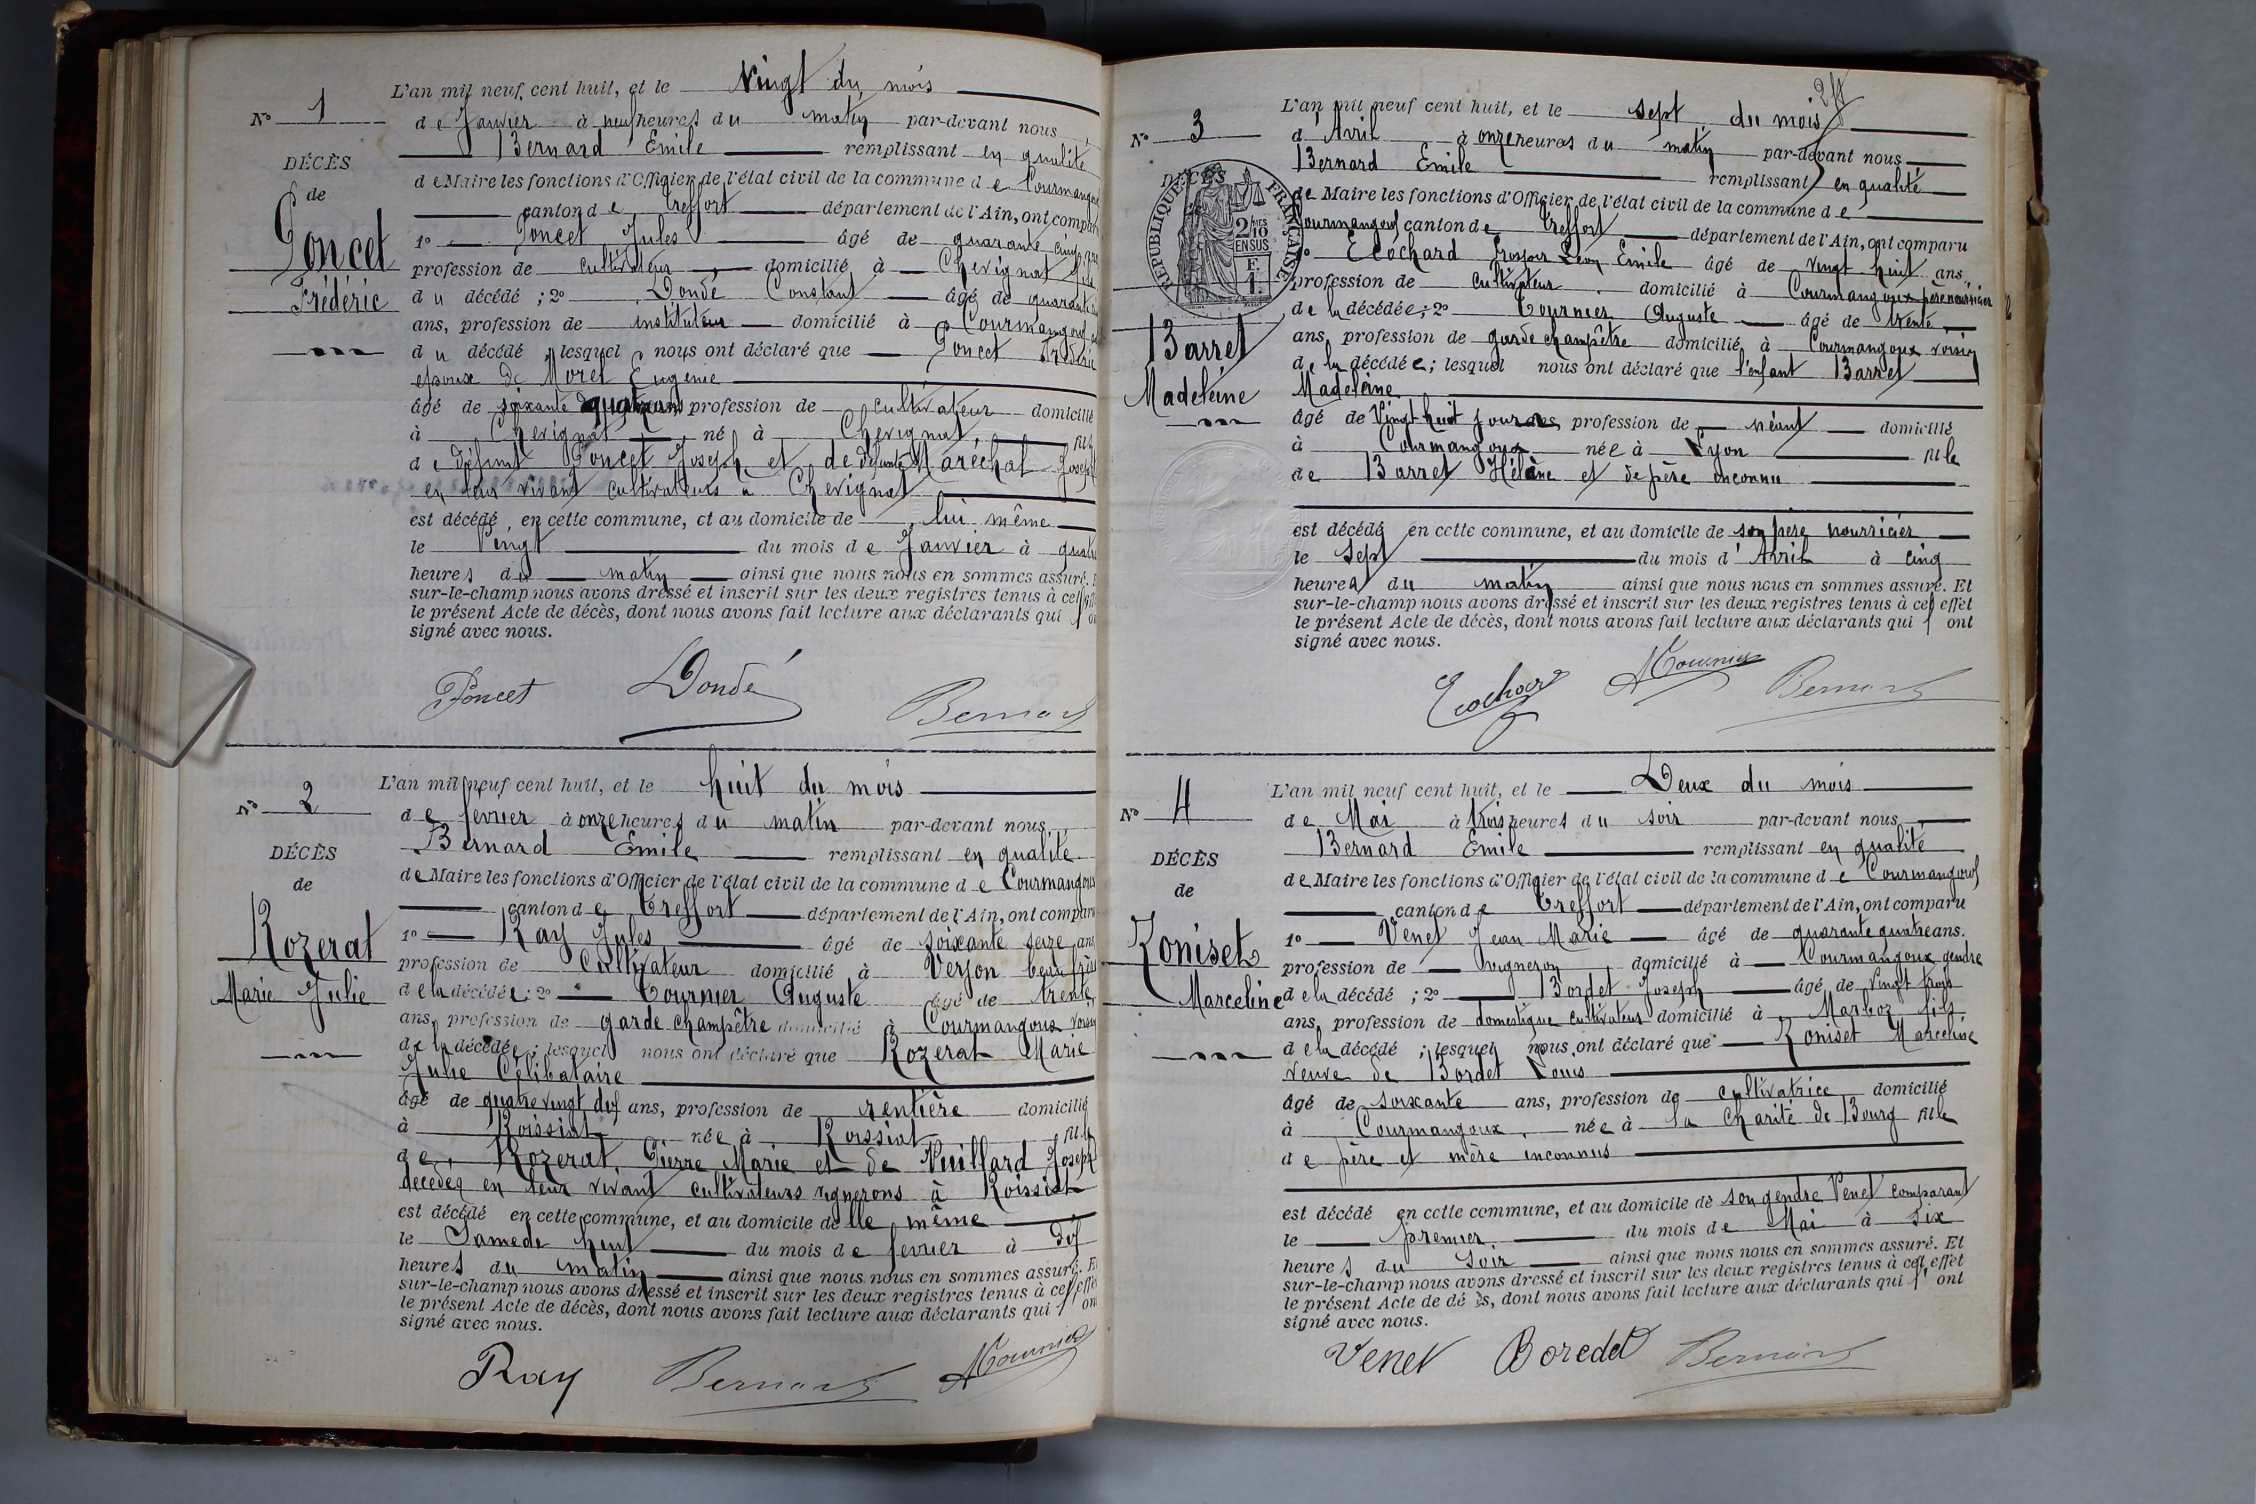 L'an mil neuf cent huit, et le Vingt du mois
N° 1
de Janvier à neuf heures du matin par-devant nous
Bernard Emile remplissant en qualité
DÉCÈS
de Maire les fonctions d'Officier de l'état civil de la commune de Courmangoux
de
canton de Treffort département de l'Ain, ont comparu
Poncet
1° Poncet Jules âgé de quarante cinq ans
profession de cultivateur domicilié à Chevignat fils
Frédéric
du décédé ; 2° Dondé Constant âgé de quarante
ans, profession de instituteur domicilié à Courmangoux
du décédé lesquel nous ont déclaré que Poncet Frédéric
époux de Morel Eugénie
âgé de soixante quatre ans profession de cultivateur domicilié
à Chevignat né à Chevignat fils
de défunt Poncet Joseph et de défunte Maréchal Joseph
en leur vivant cultivateurs à Chevignat
est décédé, en cette commune, et au domicile de lui même
le Vingt du mois de Janvier à quatre
heures du matin ainsi que nous nous en sommes assuré. Et
sur-le-champ nous avons dressé et inscrit sur les deux registres tenus à cet effet
le présent Acte de décès, dont nous avons fait lecture aux déclarants qui ont
signé avec nous.
Poncet Dondé Bernard
L'an mil neuf cent huit, et le huit du mois
N° 2
de fevrier à onze heures du matin par-devant nous
Bernard Emile remplissant en qualité
DÉCÈS
de Maire les fonctions d'Officier de l'état civil de la commune de Courmangoux
de
canton de Treffort département de l'Ain, ont comparu
Rozerat
1° Ray Jules âgé de soixante seize ans
profession de Cultivateur domicilié à Verjon beau frère
Marie Julie
de la décédée ; 2° Tournier Auguste âgé de trente
ans, profession de garde champêtre domicilié à Courmangoux voisin
de la décédée ; lesquel nous ont déclaré que Rozerat Marie
Julie Célibataire
âgé de quatre vingt dix ans, profession de rentière domicilié
à Roissiat née à Roissiat fille
de Rozerat Pierre Marie et de Vuillard Joseph
décédés en leur vivant cultivateurs vignerons à Roissiat
est décédé en cette commune, et au domicile de lle même
le Samedi huit du mois de fevrier à dix
heures du matin ainsi que nous nous en sommes assuré. Et
sur-le-champ nous avons dressé et inscrit sur les deux registres tenus à cet effet
le présent Acte de décès, dont nous avons fait lecture aux déclarants qui ont
signé avec nous.
Ray Bernard ATournier
L'an mil neuf cent huit, et le sept du mois
N° 3
d'Avril à onze heures du matin par-devant nous
Bernard Emile remplissant en qualité
DÉCÈS
RÉPUBLIQUE FRANÇAISE
2/10 EN SUS
F. 1.
de Maire les fonctions d'Officier de l'état civil de la commune de
Courmangoux canton de Treffort département de l'Ain, ont comparu
1° Ecochard Prosper Léon Emile âgé de vingt huit ans,
profession de cultivateur domicilié à Courmangoux père nourricier
de la décédée ; 2° Tournier Auguste âgé de trente
Barret
ans, profession de garde champêtre domicilié à Courmangoux voisin
de la décédée ; lesquel nous ont déclaré que l'enfant Barret
Madeleine
Madeleine
âgé de Vingt huit jours profession de néant domicilié
à Courmangoux née à Lyon fille
de Barret Hélène et de père inconnu
est décédé en cette commune, et au domicile de son père nourricier
le Sept du mois d'Avril à cinq
heures du matin ainsi que nous nous en sommes assuré. Et
sur-le-champ nous avons dressé et inscrit sur les deux registres tenus à cet effet
le présent Acte de décès, dont nous avons fait lecture aux déclarants qui ont
signé avec nous.
Ecochard ATournier Bernard
L'an mil neuf cent huit, et le Deux du mois
N° 4
de Mai à trois heures du soir par-devant nous
Bernard Emile remplissant en qualité
DÉCÈS
de Maire les fonctions d'Officier de l'état civil de la commune de Courmangoux
de
canton de Treffort département de l'Ain, ont comparu
Koniset
1° Venet Jean Marie âgé de quarante quatre ans.
profession de vigneron domicilié à Courmangoux gendre
Marceline
de la décédé ; 2° Bordet Joseph âgé de Vingt trois
ans, profession de domestique cultivateur domicilié à Marboz fils
de la décédé ; lesquel nous ont déclaré que Koniset Marceline
veuve de Bordet Louis
âgé de soixante ans, profession de cultivatrice domicilié
à Courmangoux, née à La Charité de Bourg fille
de père et mère inconnus
est décédé en cette commune, et au domicile de son gendre Venet comparant
le premier du mois de Mai à six
heures du Soir ainsi que nous nous en sommes assuré. Et
sur-le-champ nous avons dressé et inscrit sur les deux registres tenus à cet effet
le présent Acte de dé ès, dont nous avons fait lecture aux déclarants qui ont
signé avec nous.
Venet Boredet Bernard